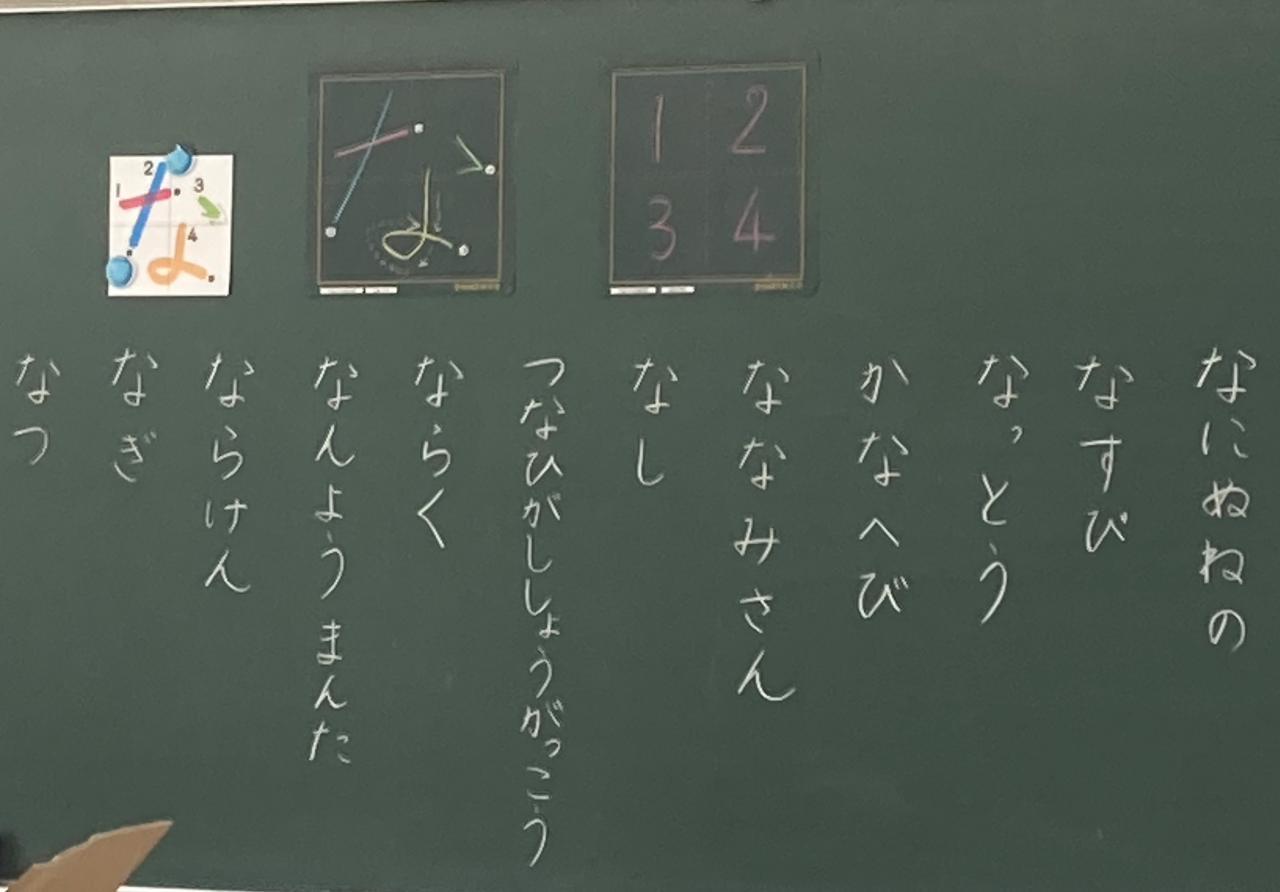 1 2
3 4
な
1 2 3 4
な
なにぬねの
なすび
なっとう
かなへび
ななみさん
なし
つなひがししょうがっこう
ならく
なんようまんた
ならけん
なぎ
なつ